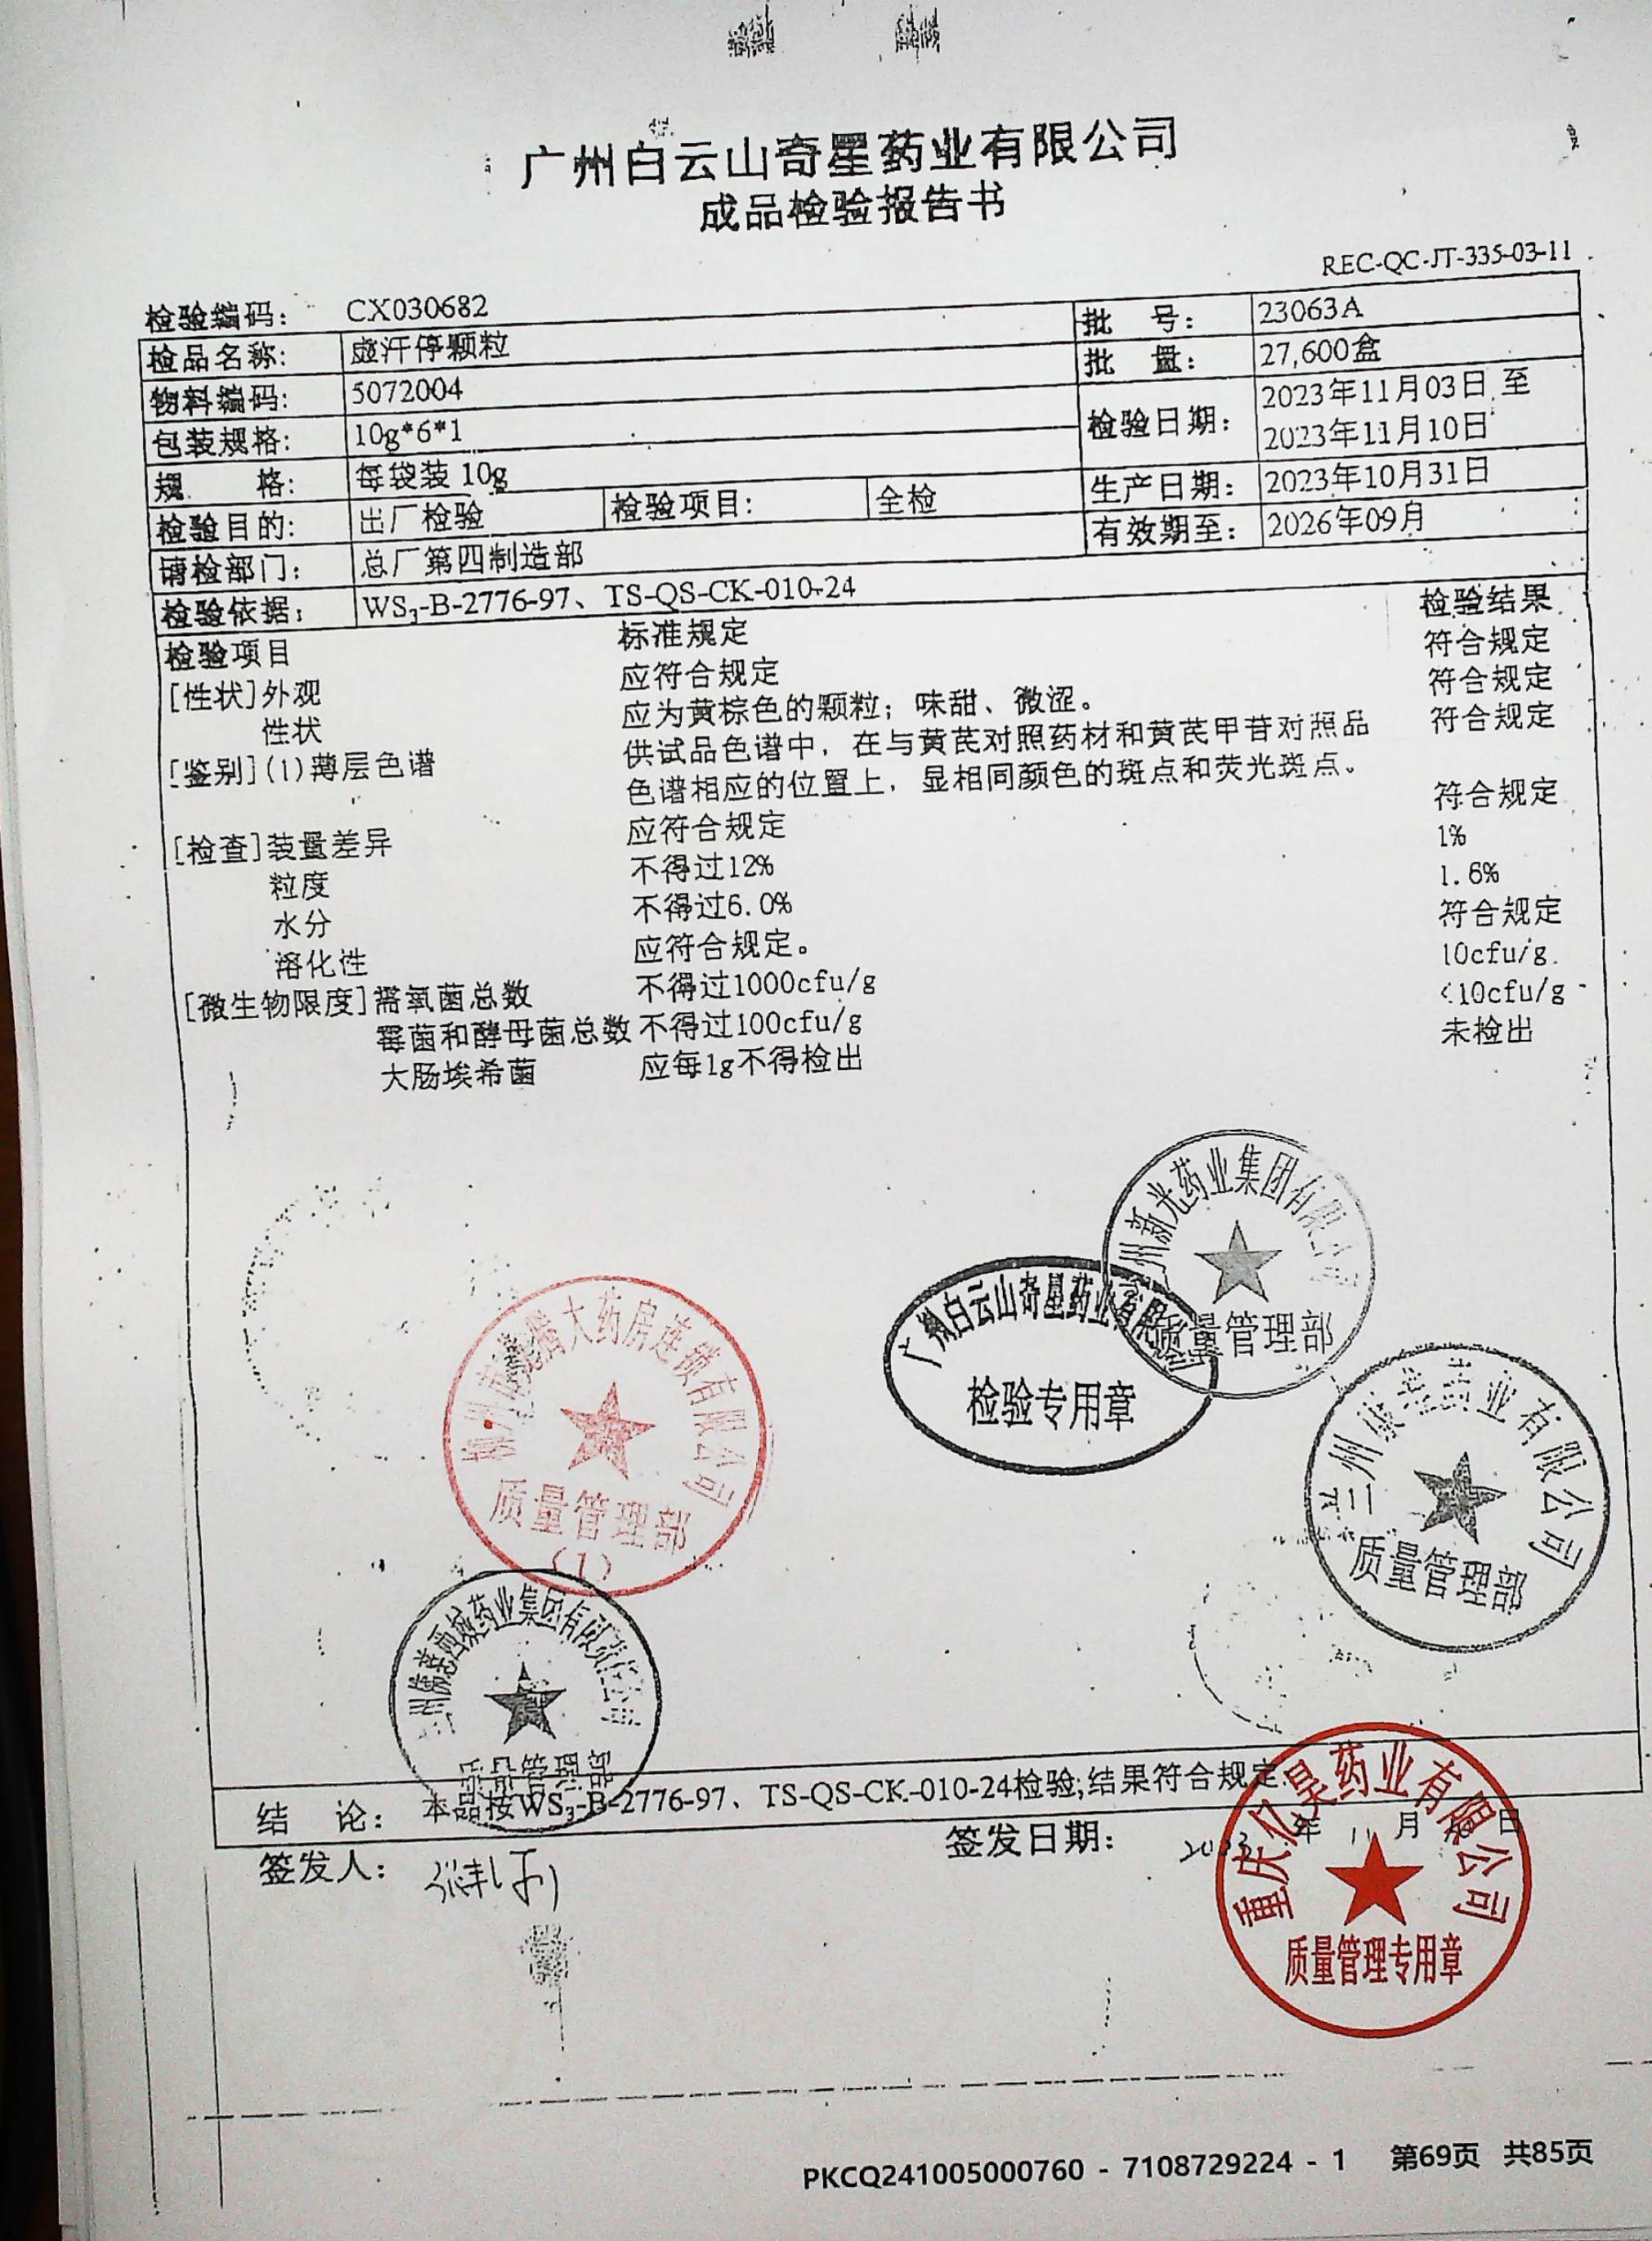 广州白云山奇星药业有限公司
成品检验报告书
REC-QC-JT-335-03-11
检验编码: CX030682
检品名称: 虚汗停颗粒 批 号: 23063A
物料编码: 5072004 批 量: 27,600盒
包装规格: 10g*6*1 检验日期: 2023年11月03日 至
2023年11月10日
规 格: 每袋装 10g 生产日期: 2023年10月31日
检验目的: 出厂检验 检验项目: 全检 有效期至: 2026年09月
请检部门: 总厂第四制造部
检验依据: WS3-B-2776-97、TS-QS-CK-010-24
检验项目 标准规定 检验结果
[性状]外观 应符合规定 符合规定
性状 应为黄棕色的颗粒；味甜、微涩。 符合规定
[鉴别](1)薄层色谱 供试品色谱中，在与黄芪对照药材和黄芪甲苷对照品 符合规定
色谱相应的位置上，显相同颜色的斑点和荧光斑点。
[检查]装量差异 应符合规定 符合规定
粒度 不得过12% 1%
水分 不得过6.0% 1.6%
溶化性 应符合规定。 符合规定
[微生物限度]需氧菌总数 不得过1000cfu/g 10cfu/g
霉菌和酵母菌总数 不得过100cfu/g <10cfu/g
大肠埃希菌 应每1g不得检出 未检出
州新光药业集团有限
质量管理部
广州白云山奇星药业有限公司
检验专用章
大药房连锁有限公司
质量管理部
(1)
兰州 药业有限公司
质量管理部
药业集团有限责任公司
质量管理部
结 论: 本品按WS3-B-2776-97、TS-QS-CK-010-24检验;结果符合规定.
签发人: 签发日期: 2023 年 11 月 10 日
重庆亿昊药业有限公司
质量管理专用章
PKCQ241005000760 - 7108729224 - 1 第69页 共85页